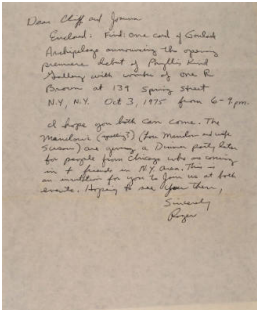 Dear Cliff and Joanne
Enclosed: Find one card of Goulash
Archipelago announcing the opening
premiere debut of Phyllis Kind
Gallery with works of one R
Brown at 139 spring street
N.Y., N.Y. Oct 3, 1975 from 6-9 pm.
I hope you both can come. The
(spelling?) (Lou Manilow and wife
Susan) are giving a Dinner party later
for people from Chicago who are coming
in + friends in N.Y. area. This is
an invitation for you to join us at both
events. Hoping to see you then,
Sincerely
Roger